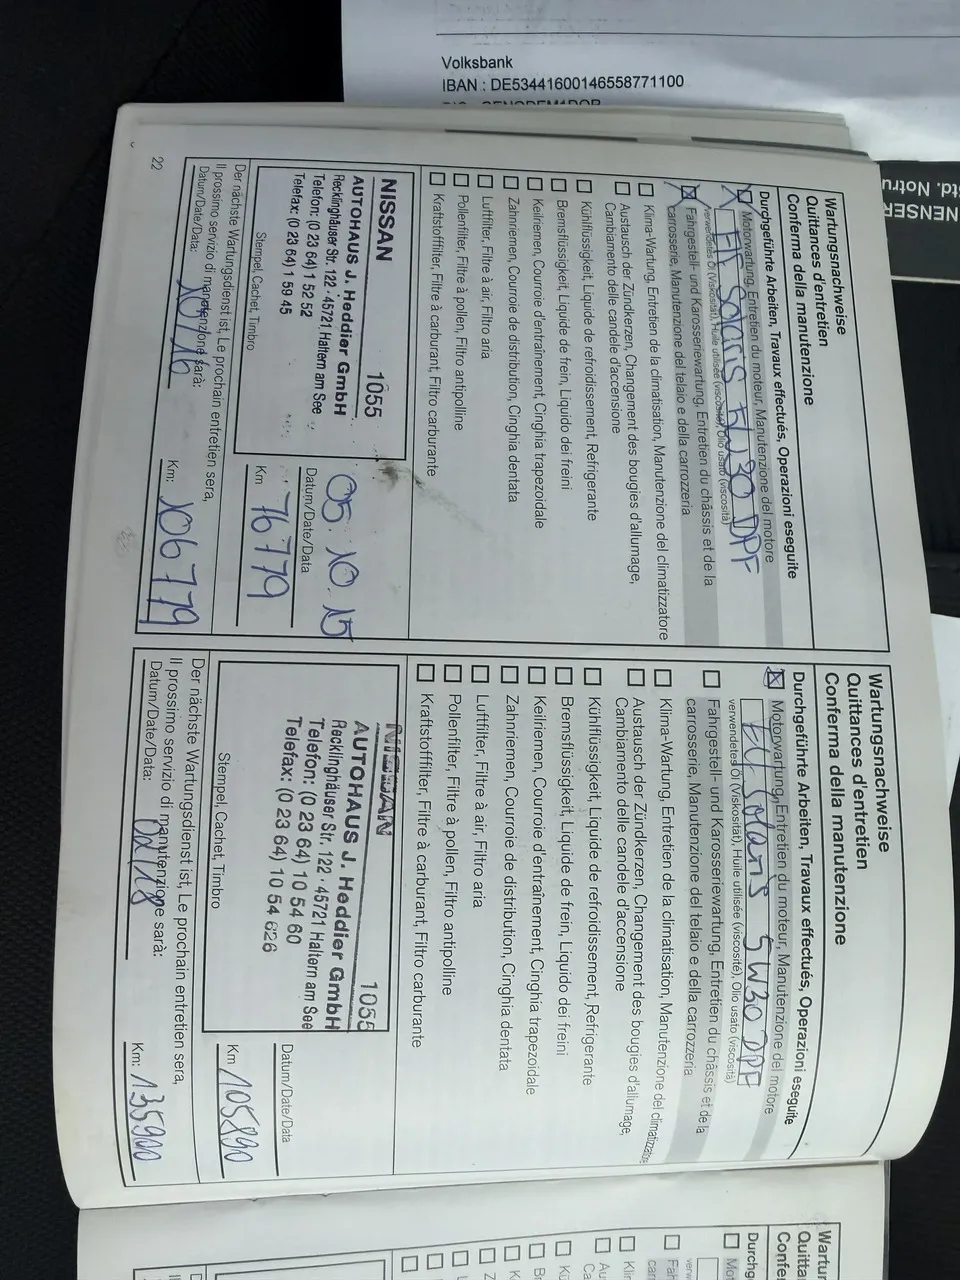 Volksbank
IBAN : DE53441600146558771100
Wartungsnachweise
Quittances d'entretien
Conferma della manutenzione
Durchgeführte Arbeiten, Travaux effectués, Operazioni eseguite
Motorwartung, Entretien du moteur, Manutenzione del motore
Elf Solaris 5W30 DPF
verwendetes Öl (Viskosität), Huile utilisée (viscosité), Olio usato (viscosità)
Fahrgestell- und Karosseriewartung, Entretien du châssis et de la
carrosserie, Manutenzione del telaio e della carrozzeria
Klima-Wartung, Entretien de la climatisation, Manutenzione del climatizzatore
Austausch der Zündkerzen, Changement des bougies d'allumage,
Cambiamento delle candele d'accensione
Kühlflüssigkeit, Liquide de refroidissement, Refrigerante
Bremsflüssigkeit, Liquide de frein, Liquido dei freini
Keilriemen, Courroie d'entraînement, Cinghia trapezoidale
Zahnriemen, Courroie de distribution, Cinghia dentata
Luftfilter, Filtre à air, Filtro aria
Pollenfilter, Filtre à pollen, Filtro antipolline
Kraftstofffilter, Filtre à carburant, Filtro carburante
NISSAN 1055
AUTOHAUS J. Heddier GmbH
Recklinghäuser Str. 122 · 45721 Haltern am See
Telefon: (0 23 64) 1 52 52
Telefax: (0 23 64) 1 59 45
Stempel, Cachet, Timbro
05. 10. 15
Datum/Date/Data
Km 76 779
Der nächste Wartungsdienst ist, Le prochain entretien sera,
Il prossimo servizio di manutenzione sarà:
Datum/Date/Data: 10/16 Km: 106 779
22
Wartungsnachweise
Quittances d'entretien
Conferma della manutenzione
Durchgeführte Arbeiten, Travaux effectués, Operazioni eseguite
Motorwartung, Entretien du moteur, Manutenzione del motore
Elf Solaris 5W30 DPF
verwendetes Öl (Viskosität), Huile utilisée (viscosité), Olio usato (viscosità)
Fahrgestell- und Karosseriewartung, Entretien du châssis et de la
carrosserie, Manutenzione del telaio e della carrozzeria
Klima-Wartung, Entretien de la climatisation, Manutenzione del climatizzatore
Austausch der Zündkerzen, Changement des bougies d'allumage,
Cambiamento delle candele d'accensione
Kühlflüssigkeit, Liquide de refroidissement, Refrigerante
Bremsflüssigkeit, Liquide de frein, Liquido dei freini
Keilriemen, Courroie d'entraînement, Cinghia trapezoidale
Zahnriemen, Courroie de distribution, Cinghia dentata
Luftfilter, Filtre à air, Filtro aria
Pollenfilter, Filtre à pollen, Filtro antipolline
Kraftstofffilter, Filtre à carburant, Filtro carburante
NISSAN 1055
AUTOHAUS J. Heddier GmbH
Recklinghäuser Str. 122 · 45721 Haltern am See
Telefon: (0 23 64) 10 54 60
Telefax: (0 23 64) 10 54 626
Stempel, Cachet, Timbro
Datum/Date/Data
Km 105890
Der nächste Wartungsdienst ist, Le prochain entretien sera,
Il prossimo servizio di manutenzione sarà:
Datum/Date/Data: 02/18 Km: 135900